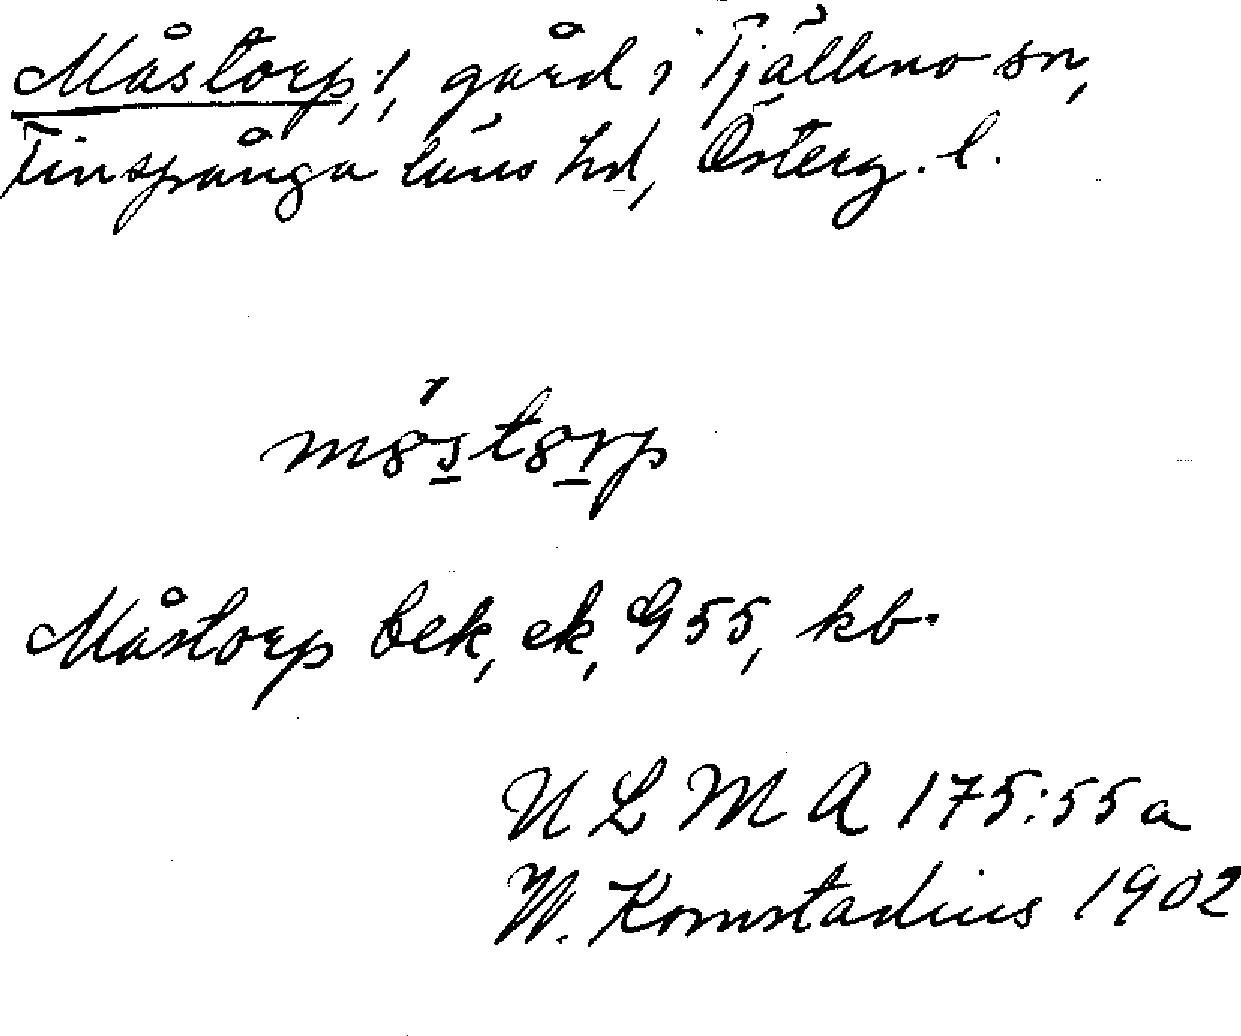 Måstorp, 1, gård i Tjällmo sn,
Finspånga läns hd, Österg. l.
mȣ́stȣrp
Måstorp bek, ek, G 55, kb.
U L M A 175:55 a
W. Kornstadius 1902